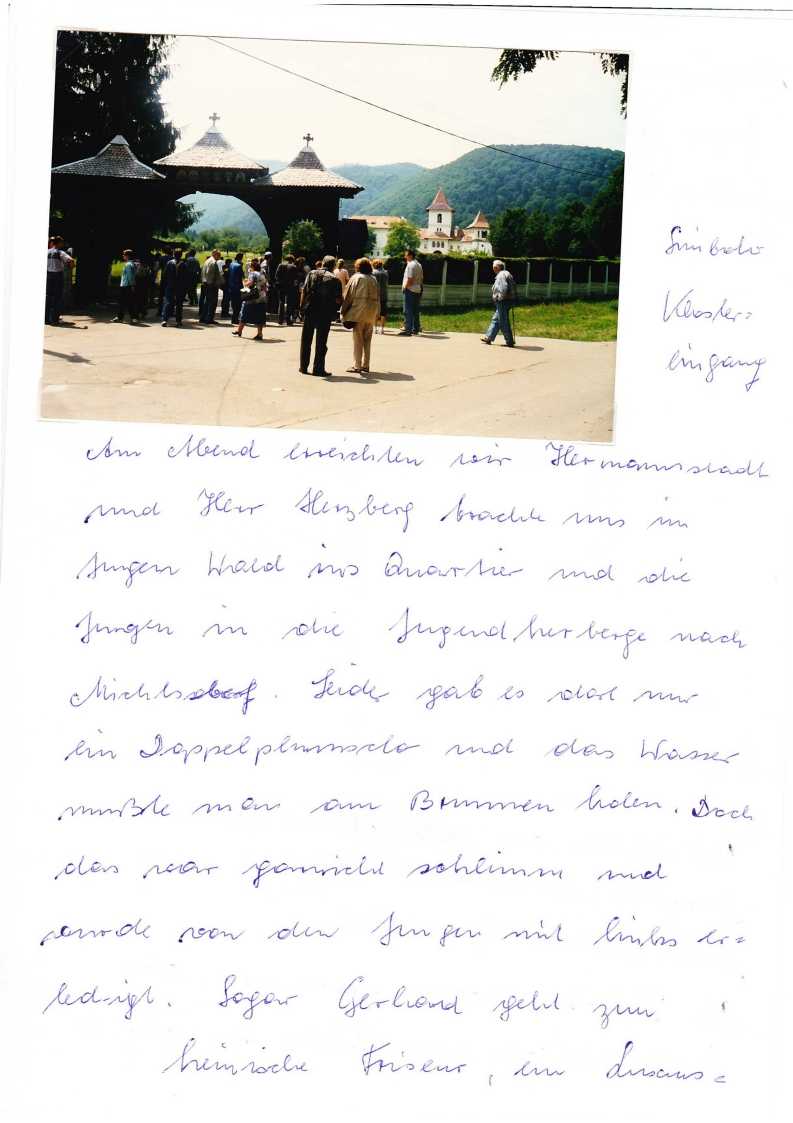 Simbata
Kloster=
eingang
Am Abend erreichten wir Hermannstadt
und Herr Herzberg brachte uns im
Jungen Wald ins Quartier und die
Jungen in die Jugendherberge nach
Michlsberg. Leider gab es dort nur
ein Doppelplumsclo und das Wasser
mußte man am Brunnen holen. Doch
das war garnicht schlimm und
wurde von den Jungen mit links er=
ledigt. Sogar Gerhard geht zum
Friseur, ein